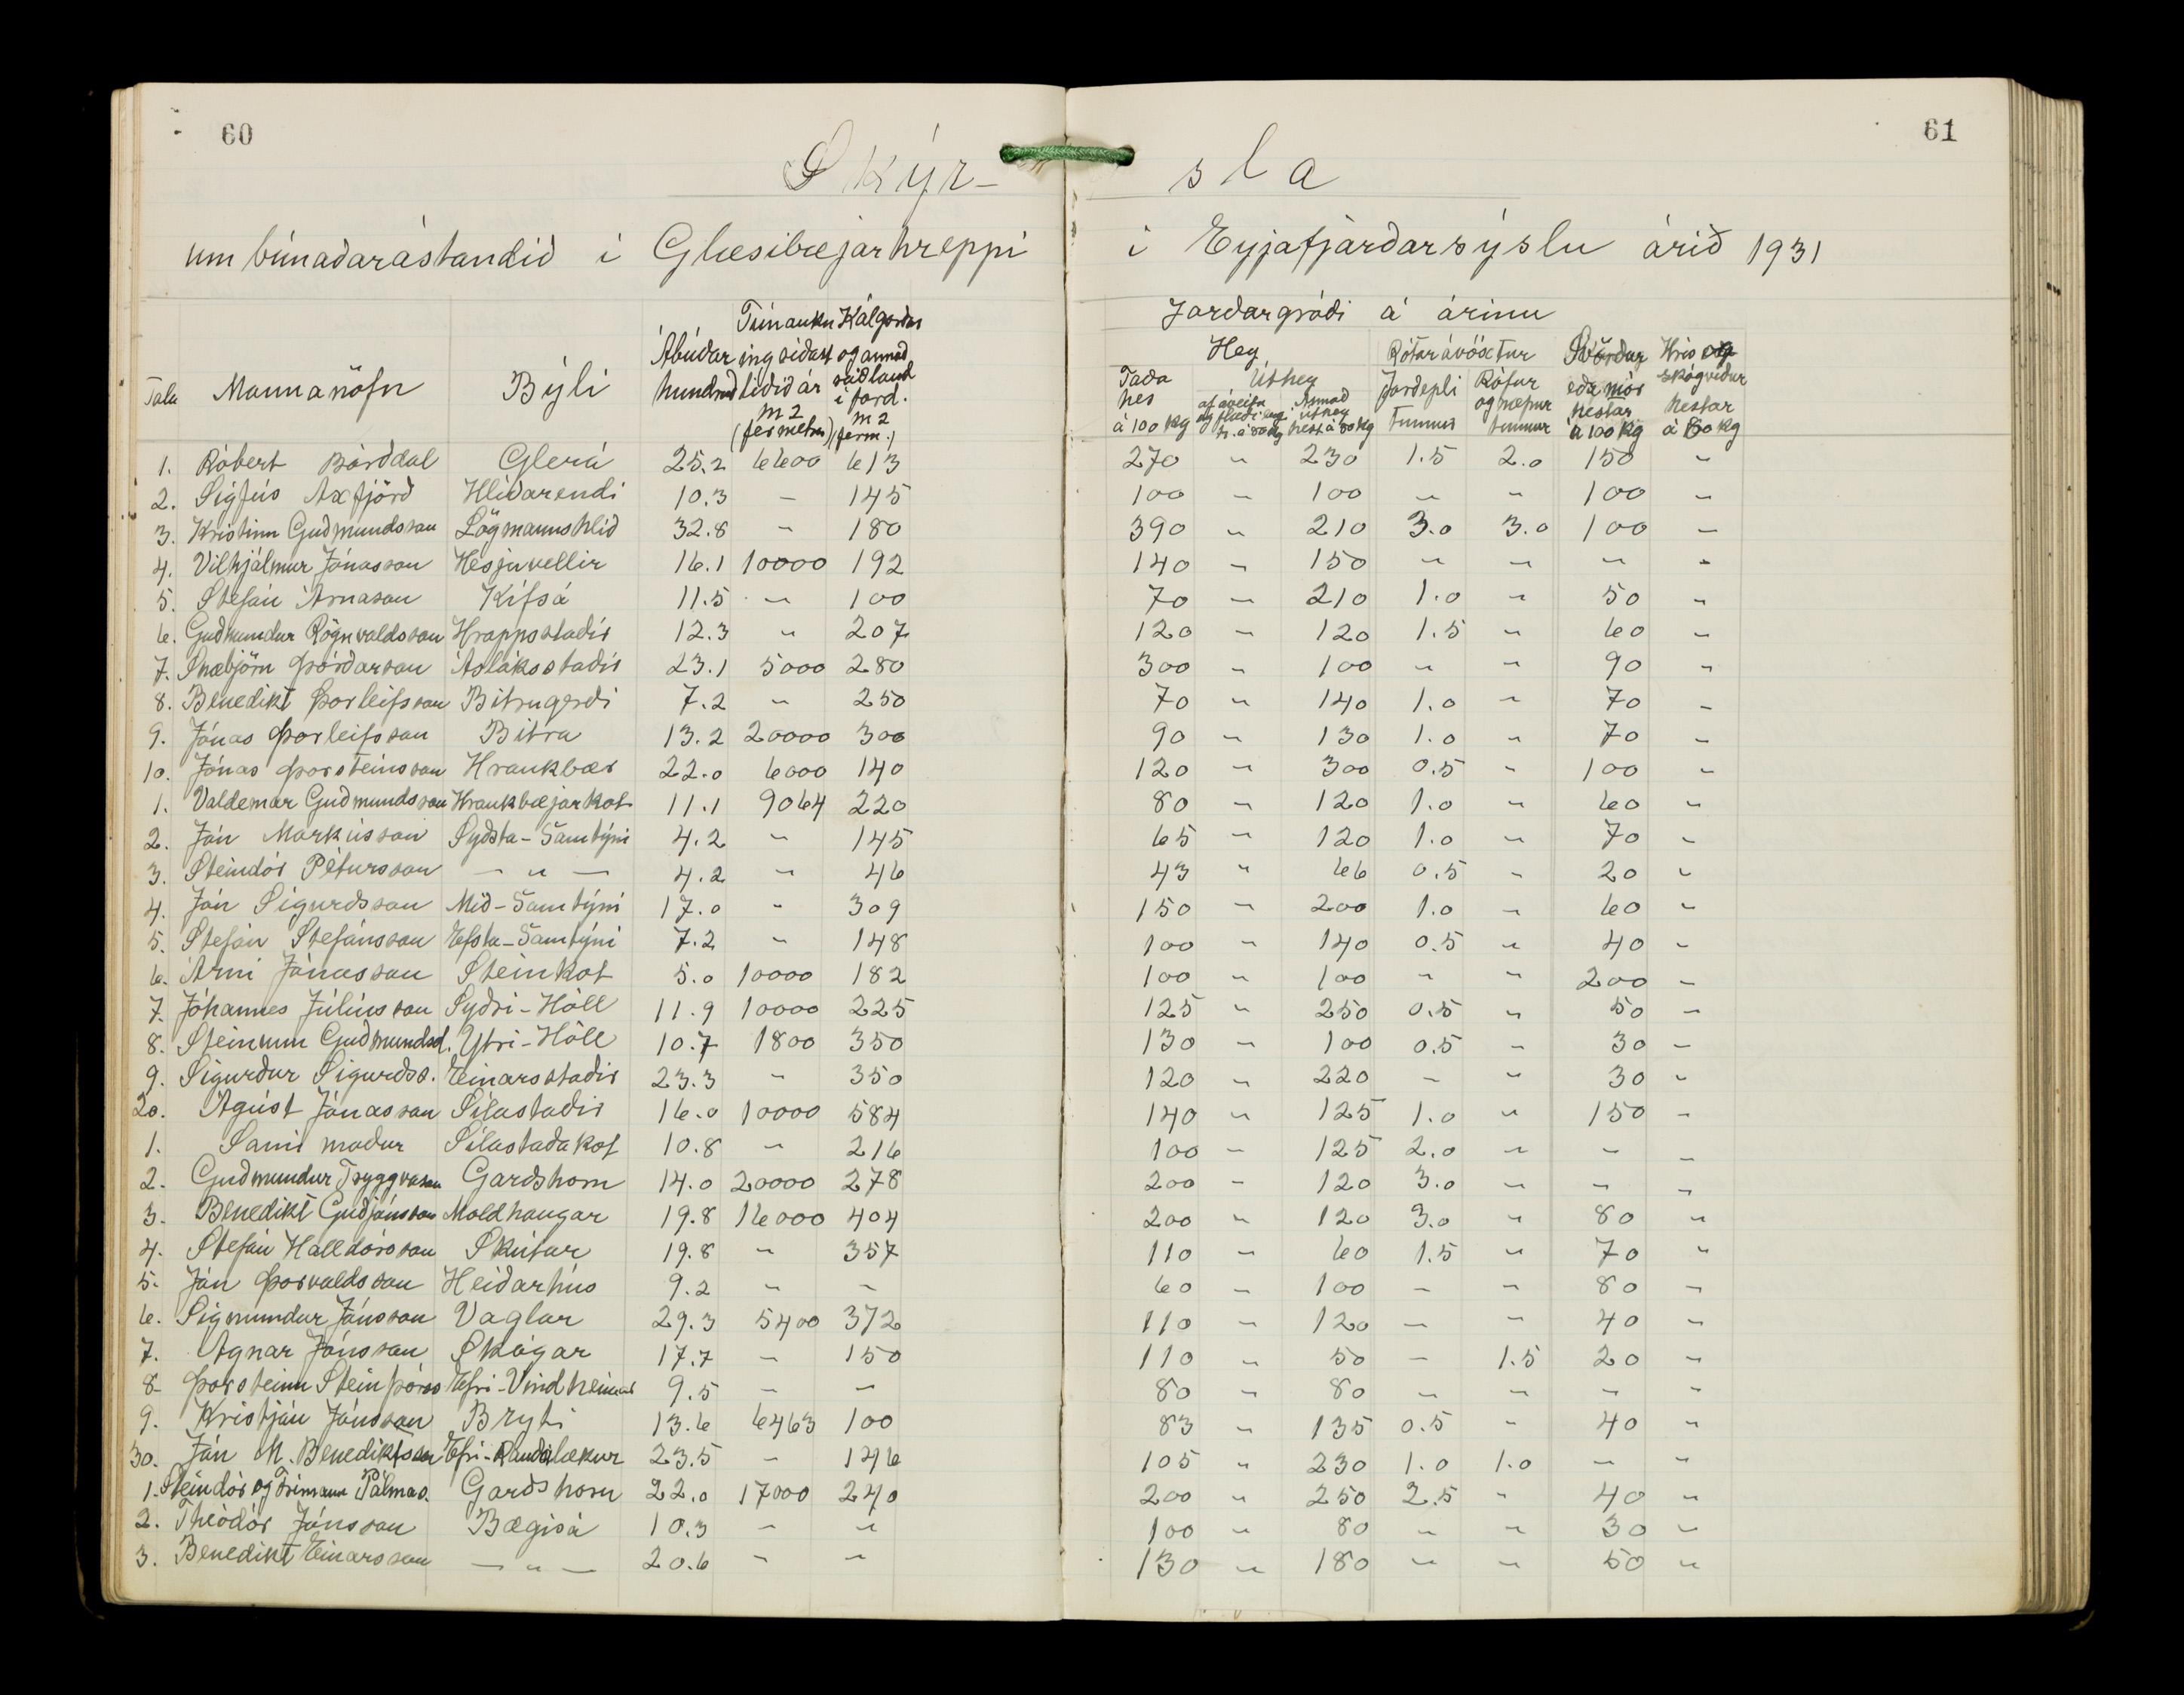 60
61
Skýr-
sla
um búnaðarástandið í Glæsibæjarhreppi
í Eyjafjarðarsýslu árið 1931
Jarðargróði á árinu
Tala Mannanöfn Býli Ábúðar hundruð Túnaukning síðast liðið ár m2 (fermetrar) Kálgarðar og annað sáðland í jörð. m2 (ferm.)
Hey Rótarávöxtur Svörður eða mór hestar á 100 kg Hrís og skógviður hestar á 80 kg
Taða hes á 100 kg Úthey af áveitu og flæðieng. h. á 80 kg Annað úthey hest á 80 kg Jarðepli tunnur Rófur og næpur tunnur
1. Róbert Bárðdal Glerá 25.2 6600 613 270 " 230 1.5 2.0 150 "
2. Sigfús Axfjörð Hlíðarendi 10.3 – 145 100 " 100 " " 100 "
3. Kristinn Guðmundsson Lögmannshlíð 32.8 " 180 390 " 210 3.0 3.0 100 "
4. Vilhjálmur Jónasson Hesjuvellir 16.1 10000 192 140 " 150 " " " "
5. Stefán Árnason Kífsá 11.5 " 100 70 " 210 1.0 " 50 "
6. Guðmundur Rögnvaldsson Hrappsstaðir 12.3 " 207 120 " 120 1.5 " 60 "
7. Snæbjörn Þórðarson Ásláksstaðir 23.1 5000 280 300 " 100 " " 90 "
8. Benedikt Þorleifsson Bitrugerði 7.2 " 250 70 " 140 1.0 " 70 "
9. Jónas Þorleifsson Bitra 13.2 20000 300 90 " 130 1.0 " 70 "
10. Jónas Þorsteinsson Hraukbær 22.0 6000 140 120 " 300 0.5 " 100 "
1. Valdemar Guðmundsson Hraukbæjarkot 11.1 9064 220 80 " 120 1.0 " 60 "
2. Jón Markússon Syðsta-Samtýni 4.2 " 145 65 " 120 1.0 " 70 "
3. Steindór Pétursson – " – 4.2 " 46 43 " 66 0.5 " 20 "
4. Jón Sigurðsson Mið-Samtýni 17.0 " 309 150 " 200 1.0 " 60 "
5. Stefán Stefánsson Efsta-Samtýni 7.2 " 148 100 " 140 0.5 " 40 "
6. Árni Jónasson Steinkot 5.0 10000 182 100 " 100 " " 200 "
7. Jóhannes Júlíusson Syðri-Hóll 11.9 10000 225 125 " 250 0.5 " 50 "
8. Steinunn Guðmundsd. Ytri-Hóll 10.7 1800 350 130 " 100 0.5 " 30 "
9. Sigurður Sigurðss. Einarsstaðir 23.3 " 350 120 " 220 – " 30 "
20. Ágúst Jónasson Sílastaðir 16.0 10000 584 140 " 125 1.0 " 150 "
1. Sami maður Sílastaðakot 10.8 " 216 100 " 125 2.0 " " "
2. Guðmundur Tryggvason Garðshorn 14.0 20000 278 200 " 120 3.0 " " "
3. Benedikt Guðjónsson Moldhaugar 19.8 16000 404 200 " 120 3.0 " 80 "
4. Stefán Halldórsson Skútar 19.8 " 357 110 " 60 1.5 " 70 "
5. Jón Þorvaldsson Heiðarhús 9.2 " – 60 " 100 – " 80 "
6. Sigmundur Jónsson Vaglar 29.3 5400 372 110 " 120 – " 40 "
7. Agnar Jónsson Skógar 17.7 – 150 110 " 50 – 1.5 20 "
8 Þorsteinn Steinþórss Efri-Vindheimar 9.5 – – 80 " 80 " " " "
9. Kristján Jónsson Bryti 13.6 6463 100 83 " 135 0.5 " 40 "
30. Jón M. Benediktsson Efri-Rauðilækur 23.5 – 146 105 " 230 1.0 1.0 – "
1. Steindór og Frímann Pálmas. Garðshorn 22.0 17000 240 200 " 250 2.5 " 40 "
2. Theódór Jónsson Bægisá 10.3 – " 100 " 80 " " 30 "
3. Benedikt Einarsson – " – 20.6 " " 130 " 180 " " 50 "